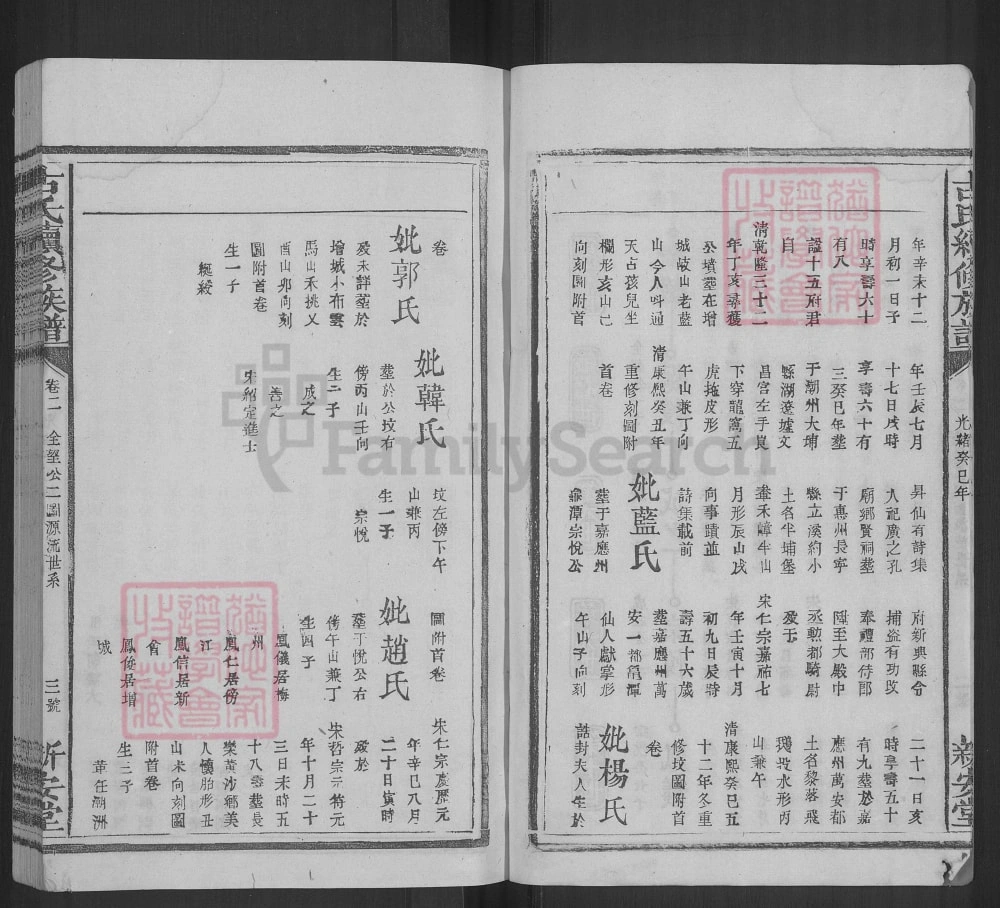 古氏續修族譜
光緒癸巳年
新安堂
年辛未十二
月初一日子
時享壽六十
有八
諡十五府君
自
清乾隆三十二
年丁亥尋獲
公墳塟在增
城岐山老藍
山今人呌通
天占孩兒坐
欄形亥山己
向刻圖附首
年壬辰七月
十七日戌時
享壽六十有
三癸巳年塟
于潮州大埔
縣湖遼墟文
昌宮左手崑
下穿龍窩五
虎拖皮形
午山兼丁向
清康熙癸丑年
重修刻圖附
首卷
昇仙有詩集
人記廣之孔
廟鄉賢祠塟
于惠州長寧
縣立溪約小
土名半埔堡
橐禾嶂牛山
月形辰山戌
向事蹟並
詩集載前
妣藍氏
塟于嘉應州
龜潭宗悅公
府新興縣令
捕盜有功攺
奉禮部侍郎
陞至大殿中
丞勲都騎尉
歿于
宋仁宗嘉祐七
年壬寅十月
初九日辰時
壽五十六歲
塟嘉應州萬
安一都黽潭
仙人獻掌形
午山子向刻
二十一日亥
時享壽五十
有九塟於嘉
應州萬安都
土名黎落飛
鵝投水形丙
山兼午
清康熙癸巳五
十二年冬重
修坟圖附首
卷
妣楊氏
誥封夫人生於
卷
妣郭氏
歿未詳塟於
增城小布雲
馬山禾挑乂
酉山卯向刻
圖附首卷
生一子
綖綬
妣韓氏
塟於公坟右
傍丙山壬向
生二子
成之
善之
宋紹定進士
坟左傍下午
山兼丙
生一子
宗悅
圖附首卷
妣趙氏
塟于悅公右
傍午山兼丁
生四子
鳳儀居梅
州
鳳仁居傍
江
鳳信居新
會
鳳俊居增
城
宋仁宗慶歷元
年辛巳八月
二十日寅時
歿於
宋哲宗元符元
年十月二十
三日未時五
十八塟長
樂黃沙鄉美
人懷胎形丑
山未向刻圖
附首卷
生三子
革任潮州
古氏續修族譜
卷二 全望公二圖源流世系
三號
新安堂
FamilySearch